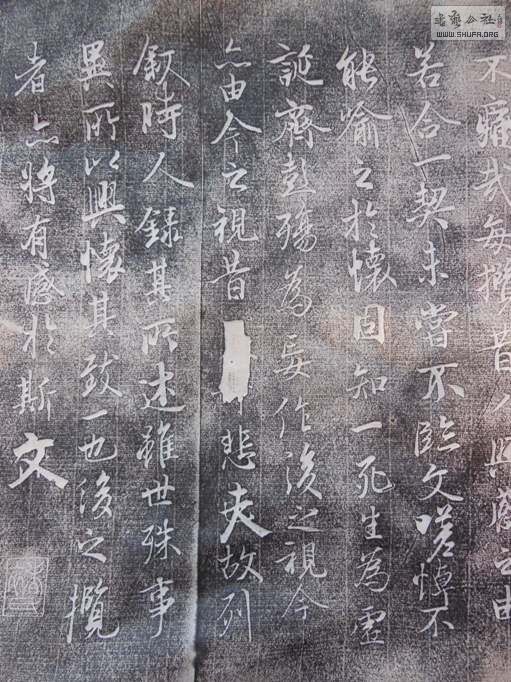 書藝公社
WWW.SHUFA.ORG
不痛哉每攬昔人興感之由
若合一契未嘗不臨文嗟悼不
能喻之於懷固知一死生為虛
誕齊彭殤為妄作後之視今
亦由今之視昔 悲夫故列
敘時人錄其所述雖世殊事
異所以興懷其致一也後之攬
者亦將有感於斯文